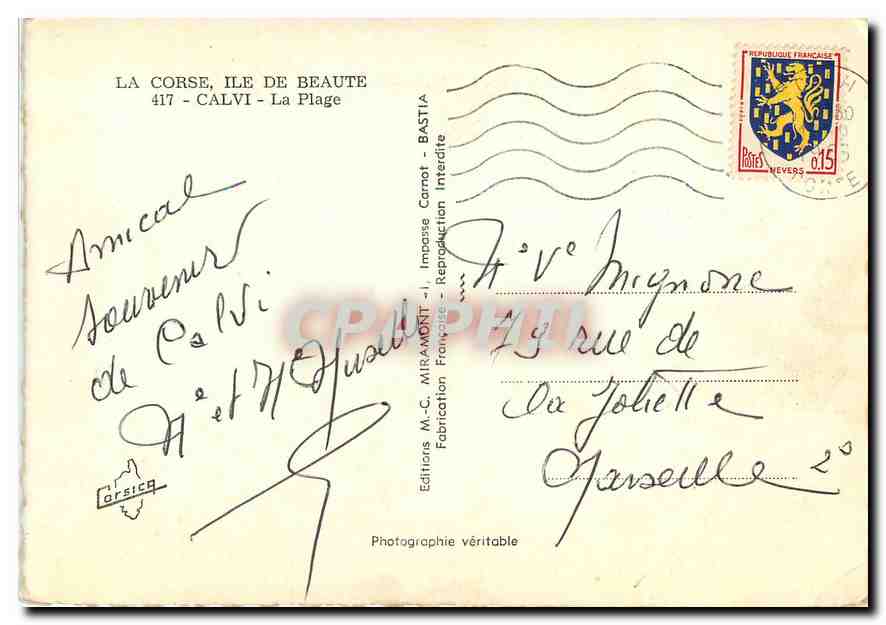 LA CORSE, ILE DE BEAUTE
417 - CALVI - La Plage
Amical
souvenir
de Calvi
Me et Mr
Corsica
Editions M.-C. MIRAMONT -1, Impasse Carnot - BASTIA
Fabrication Française - Reproduction Interdite
Photographie véritable
REPUBLIQUE FRANÇAISE
POSTES 0,15
NEVERS
CORSE
Me Ve Mignone
73 rue de
La Joliette
Marseille 2e
CPAPHIL